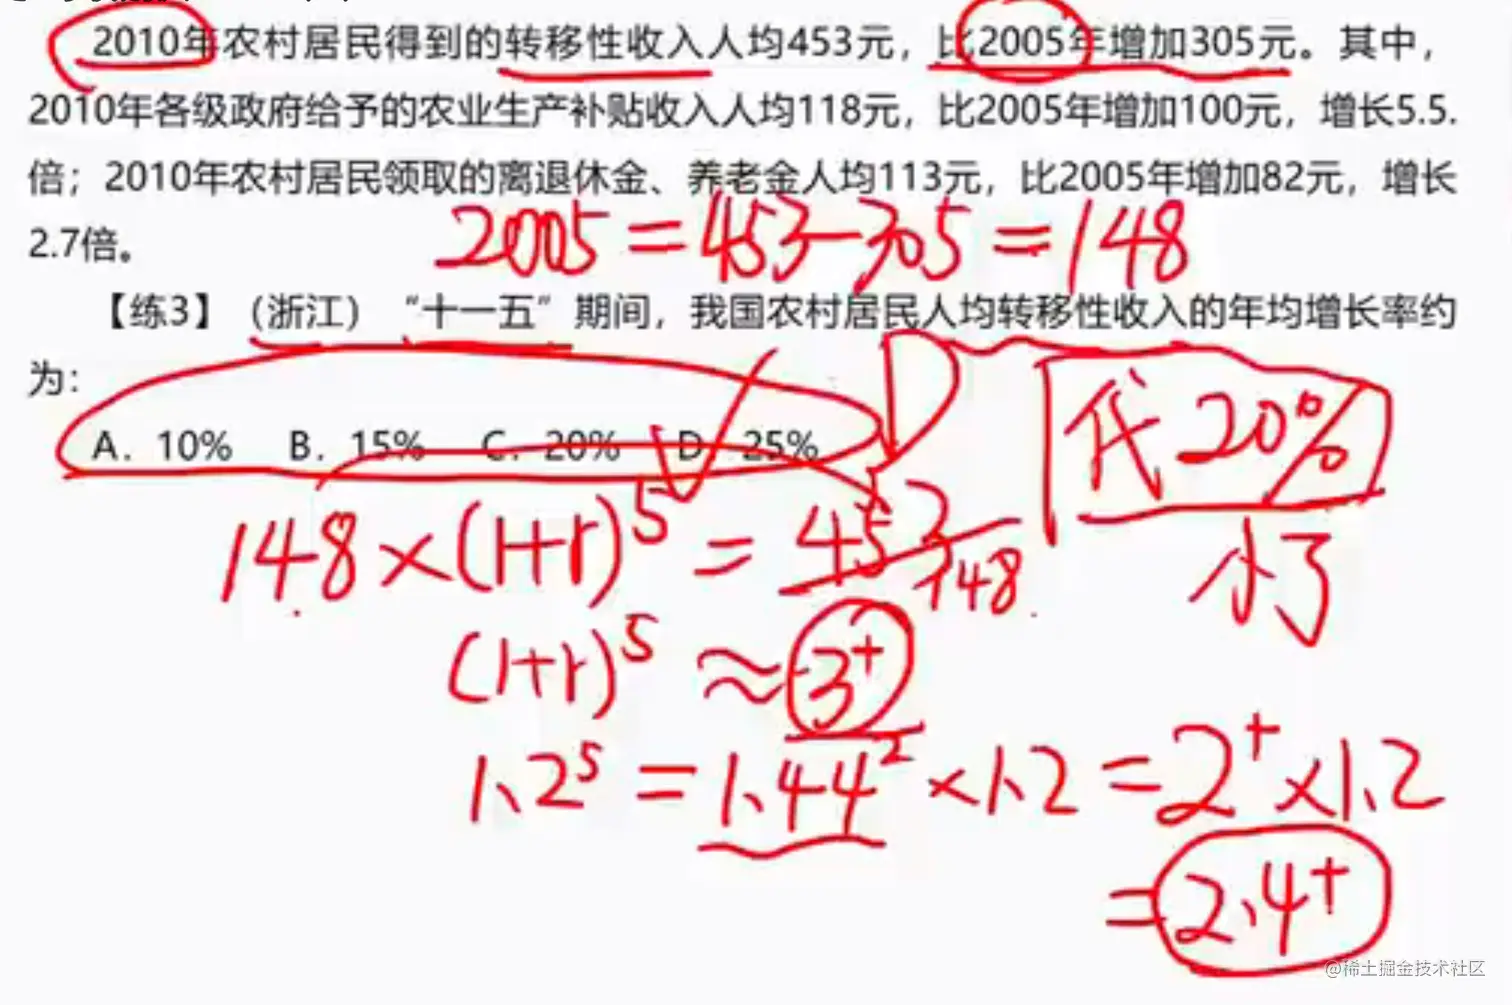 2010年农村居民得到的转移性收入人均453元，比2005年增加305元。其中，
2010年各级政府给予的农业生产补贴收入人均118元，比2005年增加100元，增长5.5.
倍；2010年农村居民领取的离退休金、养老金人均113元，比2005年增加82元，增长
2.7倍。
2005=453-305=148
【练3】（浙江）“十一五”期间，我国农村居民人均转移性收入的年均增长率约
为：
A. 10% B. 15% C. 20% D. 25%
D
代20%
小了
148×(1+r)⁵=453/148
(1+r)⁵≈3⁺
1.2⁵=1.44²×1.2=2⁺×1.2
=2.4⁺
@稀土掘金技术社区